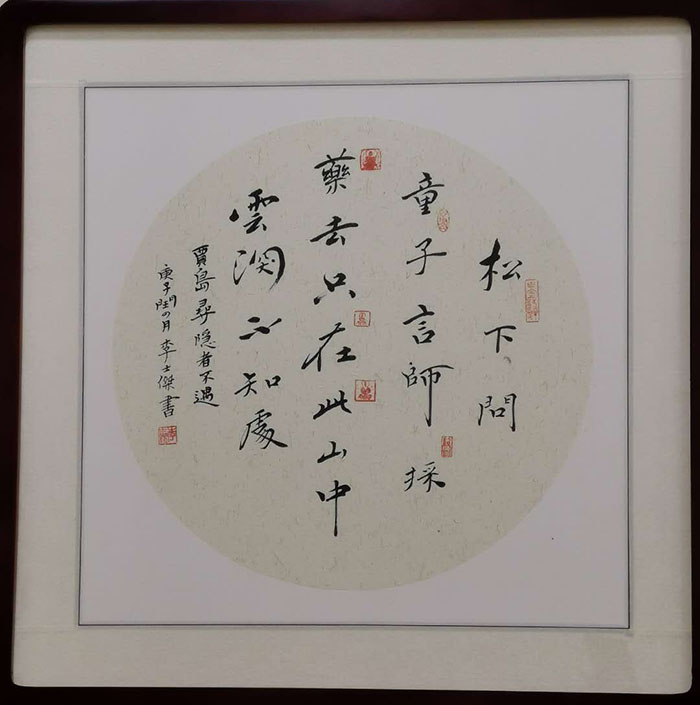 松下問
童子言師採
藥去只在此山中
雲深不知處
賈島尋隱者不遇
庚子閏四月李士傑書